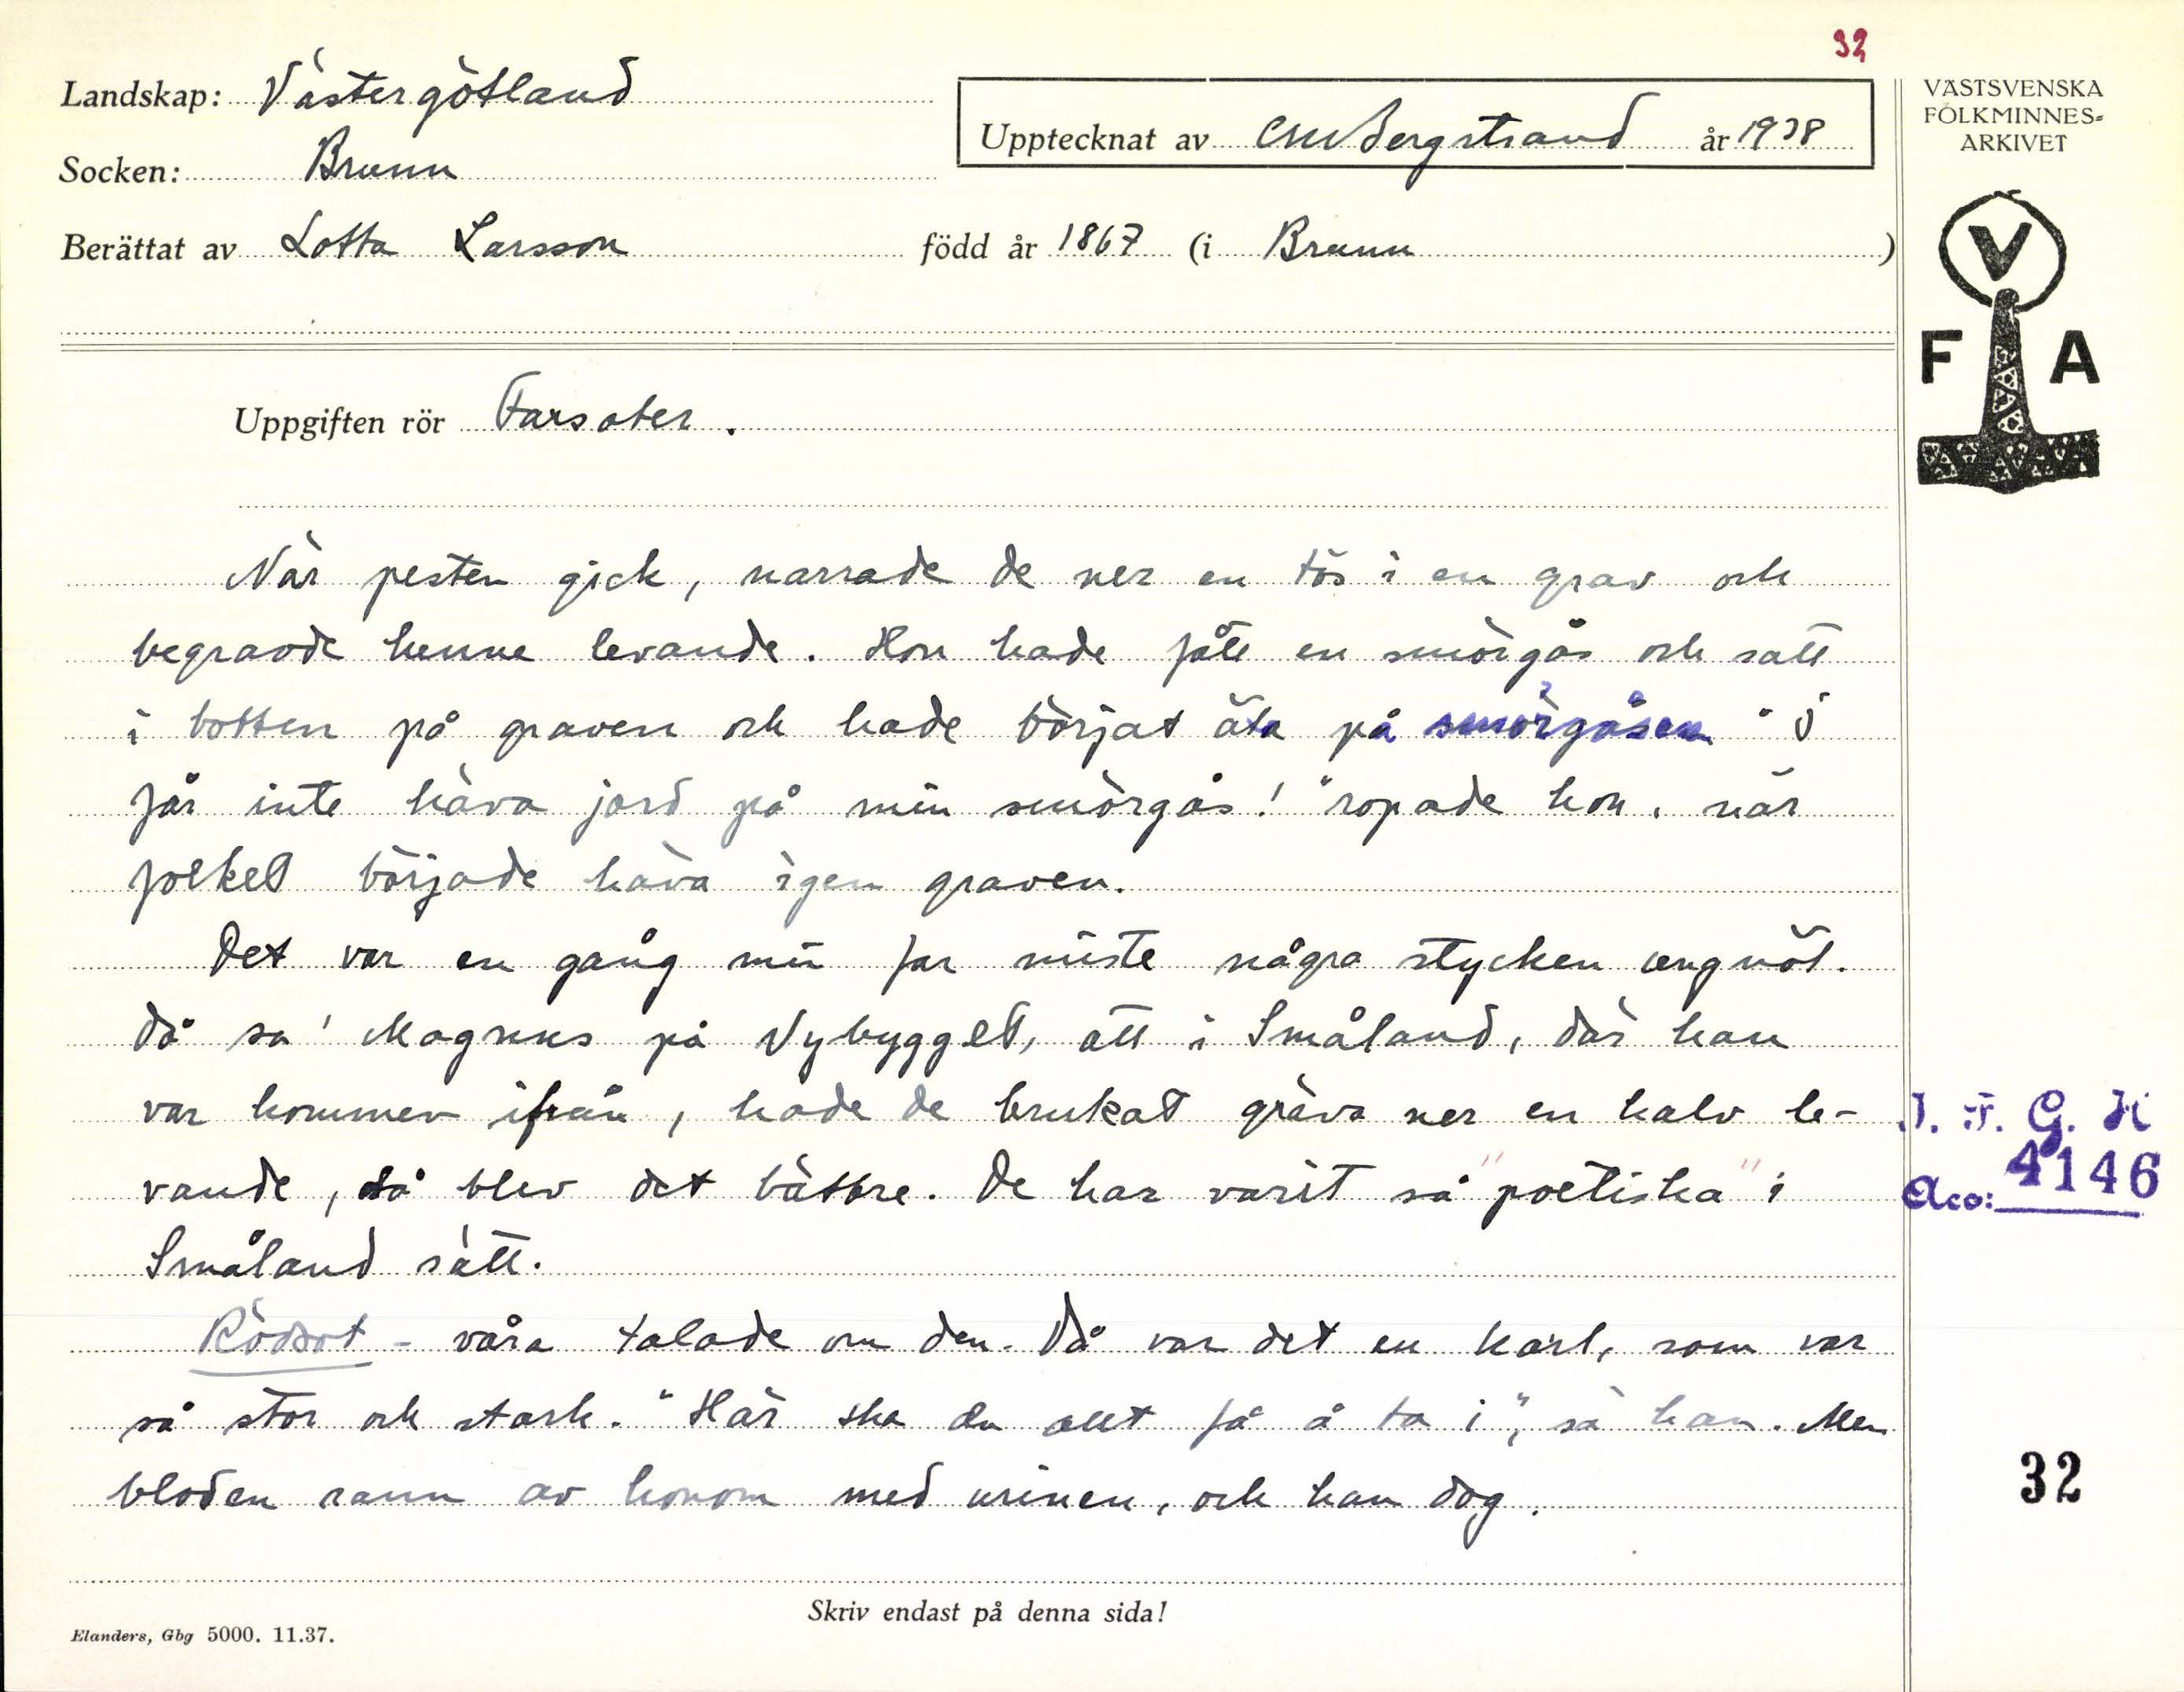 32
Landskap: Västergötland
Upptecknat av CMBergstrand år 1938
Socken: Brunn
Berättat av Lotta Larsson född år 1867 (i Brunn)
Uppgiften rör Farsoter.
När pesten gick, narrade de ner en tös i en grav och
begravde henne levande. Hon hade fått en smörgås och satt
i botten på graven och hade börjat äta på smörgåsen. "I
får inte håva jord på min smörgås!" ropade hon, när
folket började håva igen graven.
Det var en gång min far miste några stycken ungnöt.
Då sa' Magnus på Nybygget, att i Småland, där han
var kommen ifrån, hade de brukat gräva ner en kalv le-
vande, så blev det bättre. De har varit så "poetiska" i
Småland sätt.
Rödsot - våra talade om den. Då var det en karl, som var
så stor och stark. "Här ska du allt få å ta i", sa han. Men
bloden rann av honom med urinen, och han dog.
Skriv endast på denna sida!
Elanders, Gbg 5000. 11.37.
VÄSTSVENSKA
FOLKMINNES=
ARKIVET
V
F A
I. F. G. H
Acc: 4146
32